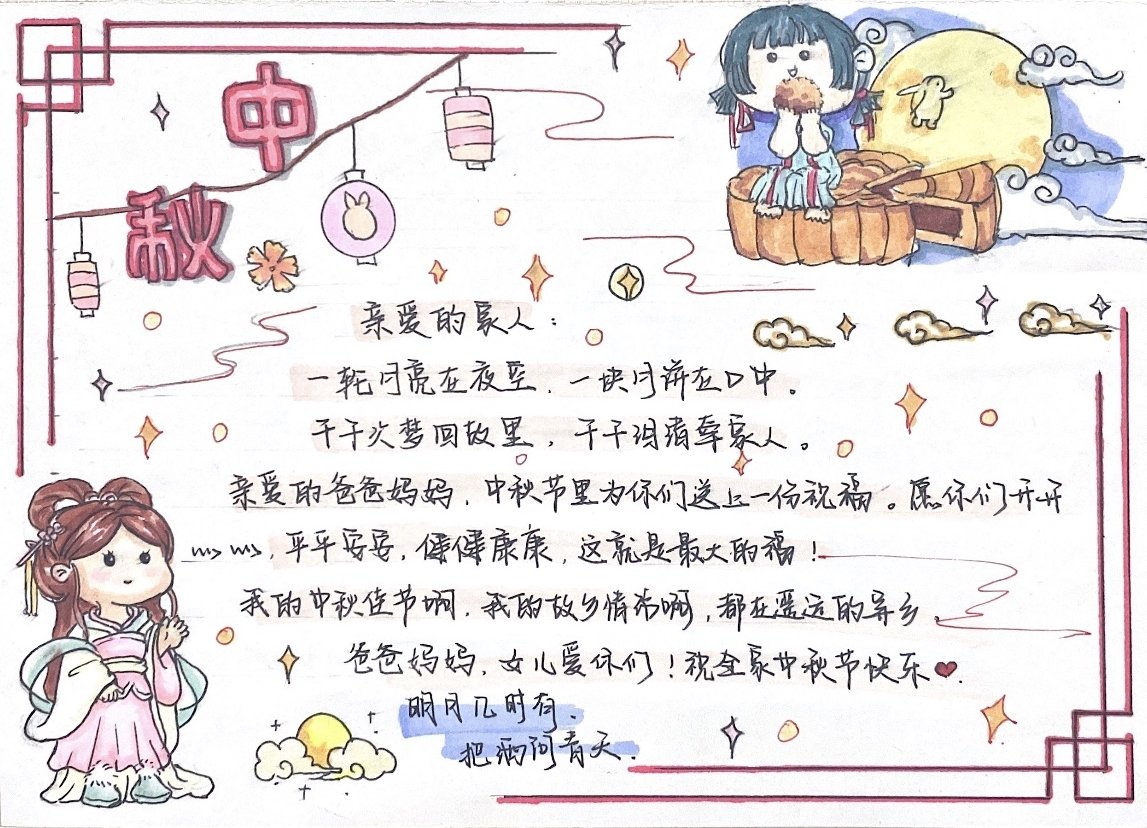 中秋
亲爱的家人：
一轮月亮在夜空，一块月饼在口中。
千千次梦回故里，千千泪滴牵家人。
亲爱的爸爸妈妈，中秋节里为你们送上一份祝福。愿你们开开
心心，平平安安，健健康康，这就是最大的福！
我的中秋佳节啊，我的故乡情许啊，都在遥远的异乡。
爸爸妈妈，女儿爱你们！祝全家中秋节快乐❤.
明月几时有，
把酒问青天.